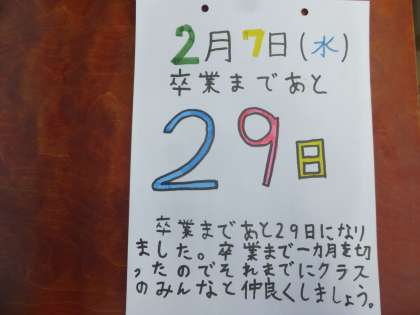 2月7日(水)
卒業まであと
29日
卒業まであと29日になり
ました。卒業まで一カ月を切
ったのでそれまでにクラス
のみんなと仲良くしましょう。